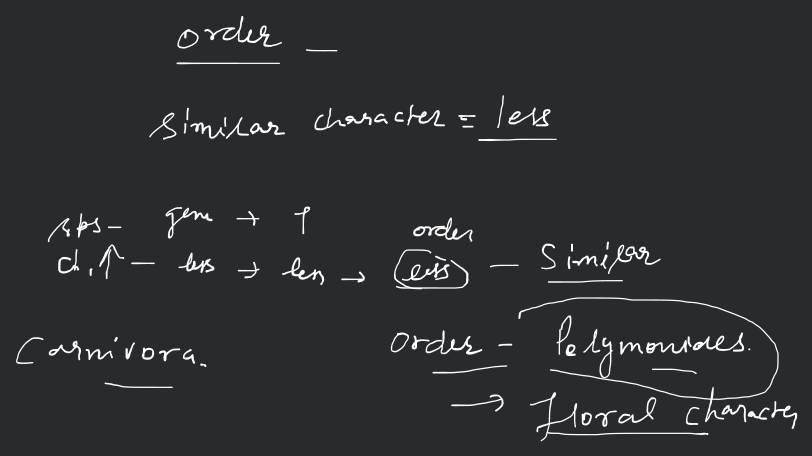 order —
Similar character = less
sps - gen → ↑
order
ch. ↑ - less → less → less - Similar
Carnivora.
order - Polymoniales.
→ Floral character